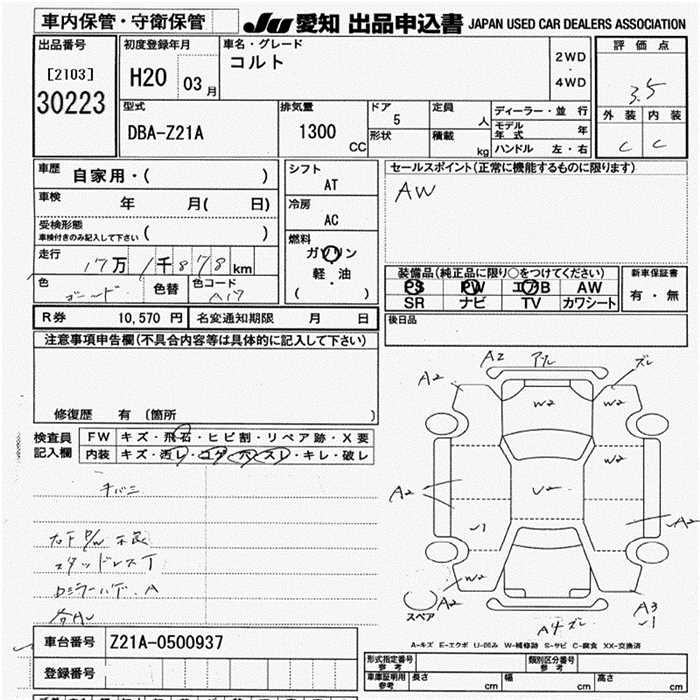 車内保管・守衛保管
JU 愛知 出品申込書 JAPAN USED CAR DEALERS ASSOCIATION
出品番号
[2103]
30223
初度登録年月
H20 03 月
車名・グレード
コルト
2WD
・
4WD
評価点
3.5
外装 内装
C C
型式
DBA-Z21A
排気量
1300
CC
ドア
5
形状
定員
人
積載
kg
ディーラー・並行
モデル年式 年
ハンドル 左・右
車歴 自家用・( )
車検 年 月( 日)
受検形態
車検付きのみ記入して下さい ( )
走行 17万 1千878 km
色 ゴールド 色替 色コード A17
シフト
AT
冷房
AC
燃料
ガソリン
軽・油
( )
セールスポイント(正常に機能するものに限ります)
AW
装備品(純正品に限り○をつけてください)
PS PW エアB AW
SR ナビ TV カワシート
新車保証書
有・無
後日品
R券 10,570 円 名変通知期限 月 日
注意事項申告欄(不具合内容等は具体的に記入して下さい)
修復歴 有 〔箇所 〕
検査員
記入欄
FW キズ・飛石・ヒビ割・リペア跡・X要
内装 キズ・汚レ・コゲ・穴・スレ・キレ・破レ
右下P/W不良
スタッドレスT
A2 アル
A2 ズレ
W2 W2
W2
A2 U2
U1 A2
W2
A2
スペア
A4 ズレ
A3
U1
A-キズ E-エクボ U-凹み W-補修跡 S-サビ C-腐食 XX-交換済
車台番号 Z21A-0500937
登録番号
形式指定番号
参考
類別区分番号
参考
車庫証明用
参考
長さ cm 幅 cm 高さ cm